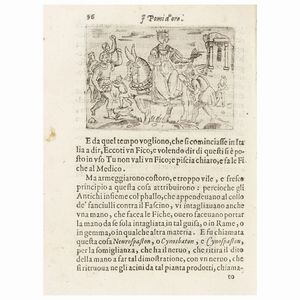 96 I Pomi d'oro.
E da quel tempo vogliono, che si cominciasse in Ita
lia a dir, Eccoti vn Fico, e volendo dir di questi si è po
sto in vso Tu non vali vn Fico; e piscia chiaro, e fa le Fi
che al Medico.
Ma armeggiarono costoro, e troppo vile, e fresco
principio a questa cosa attribuirono: percioche gli
Antichi insieme col phallo, che appendeuano al collo
de' fanciulli contra il Fascino, vi intagliauano anche
vna mano, che facea le Fiche, ouero faceuano portar
la mano da se sola intagliata in tal guisa, o in Rame, o
in gemma, o in qualche altra materia. E fu chiamata
questa cosa Neurospaston, o Cynosbaton, e Cynospaston,
per la somiglianza, che ha il neruo, che ritira il dito
della mano a far tal dimostratione, con vn neruo, che
si ritruoua ne gli acini da tal pianta prodotti, chiama-
to